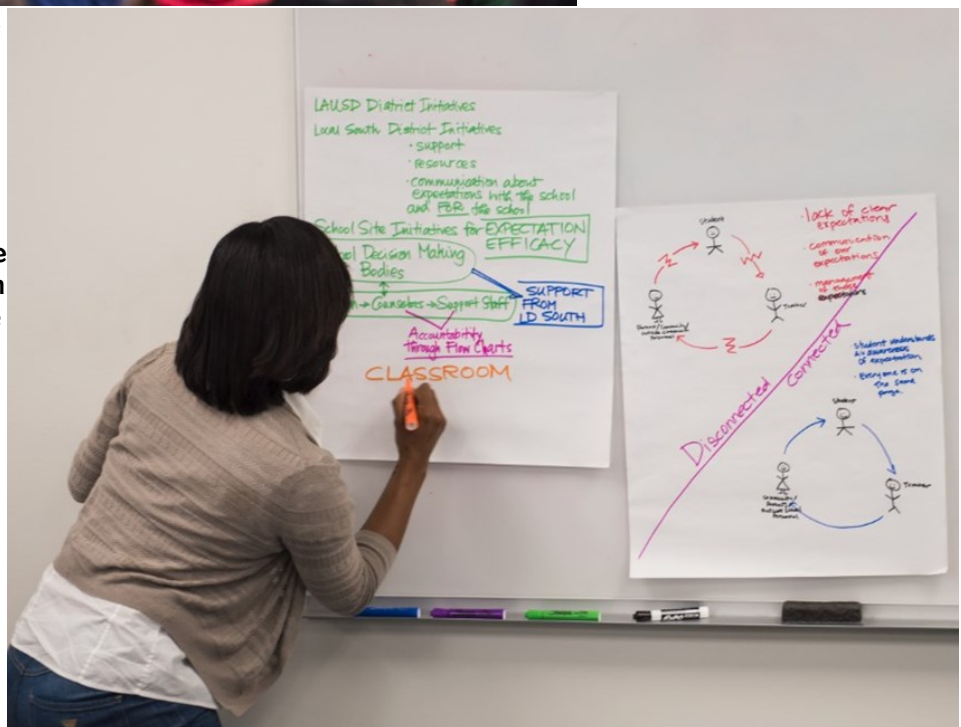 LAUSD District Initiatives
Local South District Initiatives
· support
· resources
· communication about
expectations with the school
and FOR the school
School Site Initiatives for EXPECTATION
EFFICACY
Decision Making
Bodies
→ Counselors → Support Staff
SUPPORT
FROM
LD SOUTH
Accountability
Through Flow Charts
CLASSROOM
Student
· lack of clear
expectations
· communication
of our
expectations
· management
of
expectations
Teacher
Disconnected
Connected
· Student understands
awareness
of expectation
· Everyone is on
the same
page.
Student
Teacher
Community/
EXPO